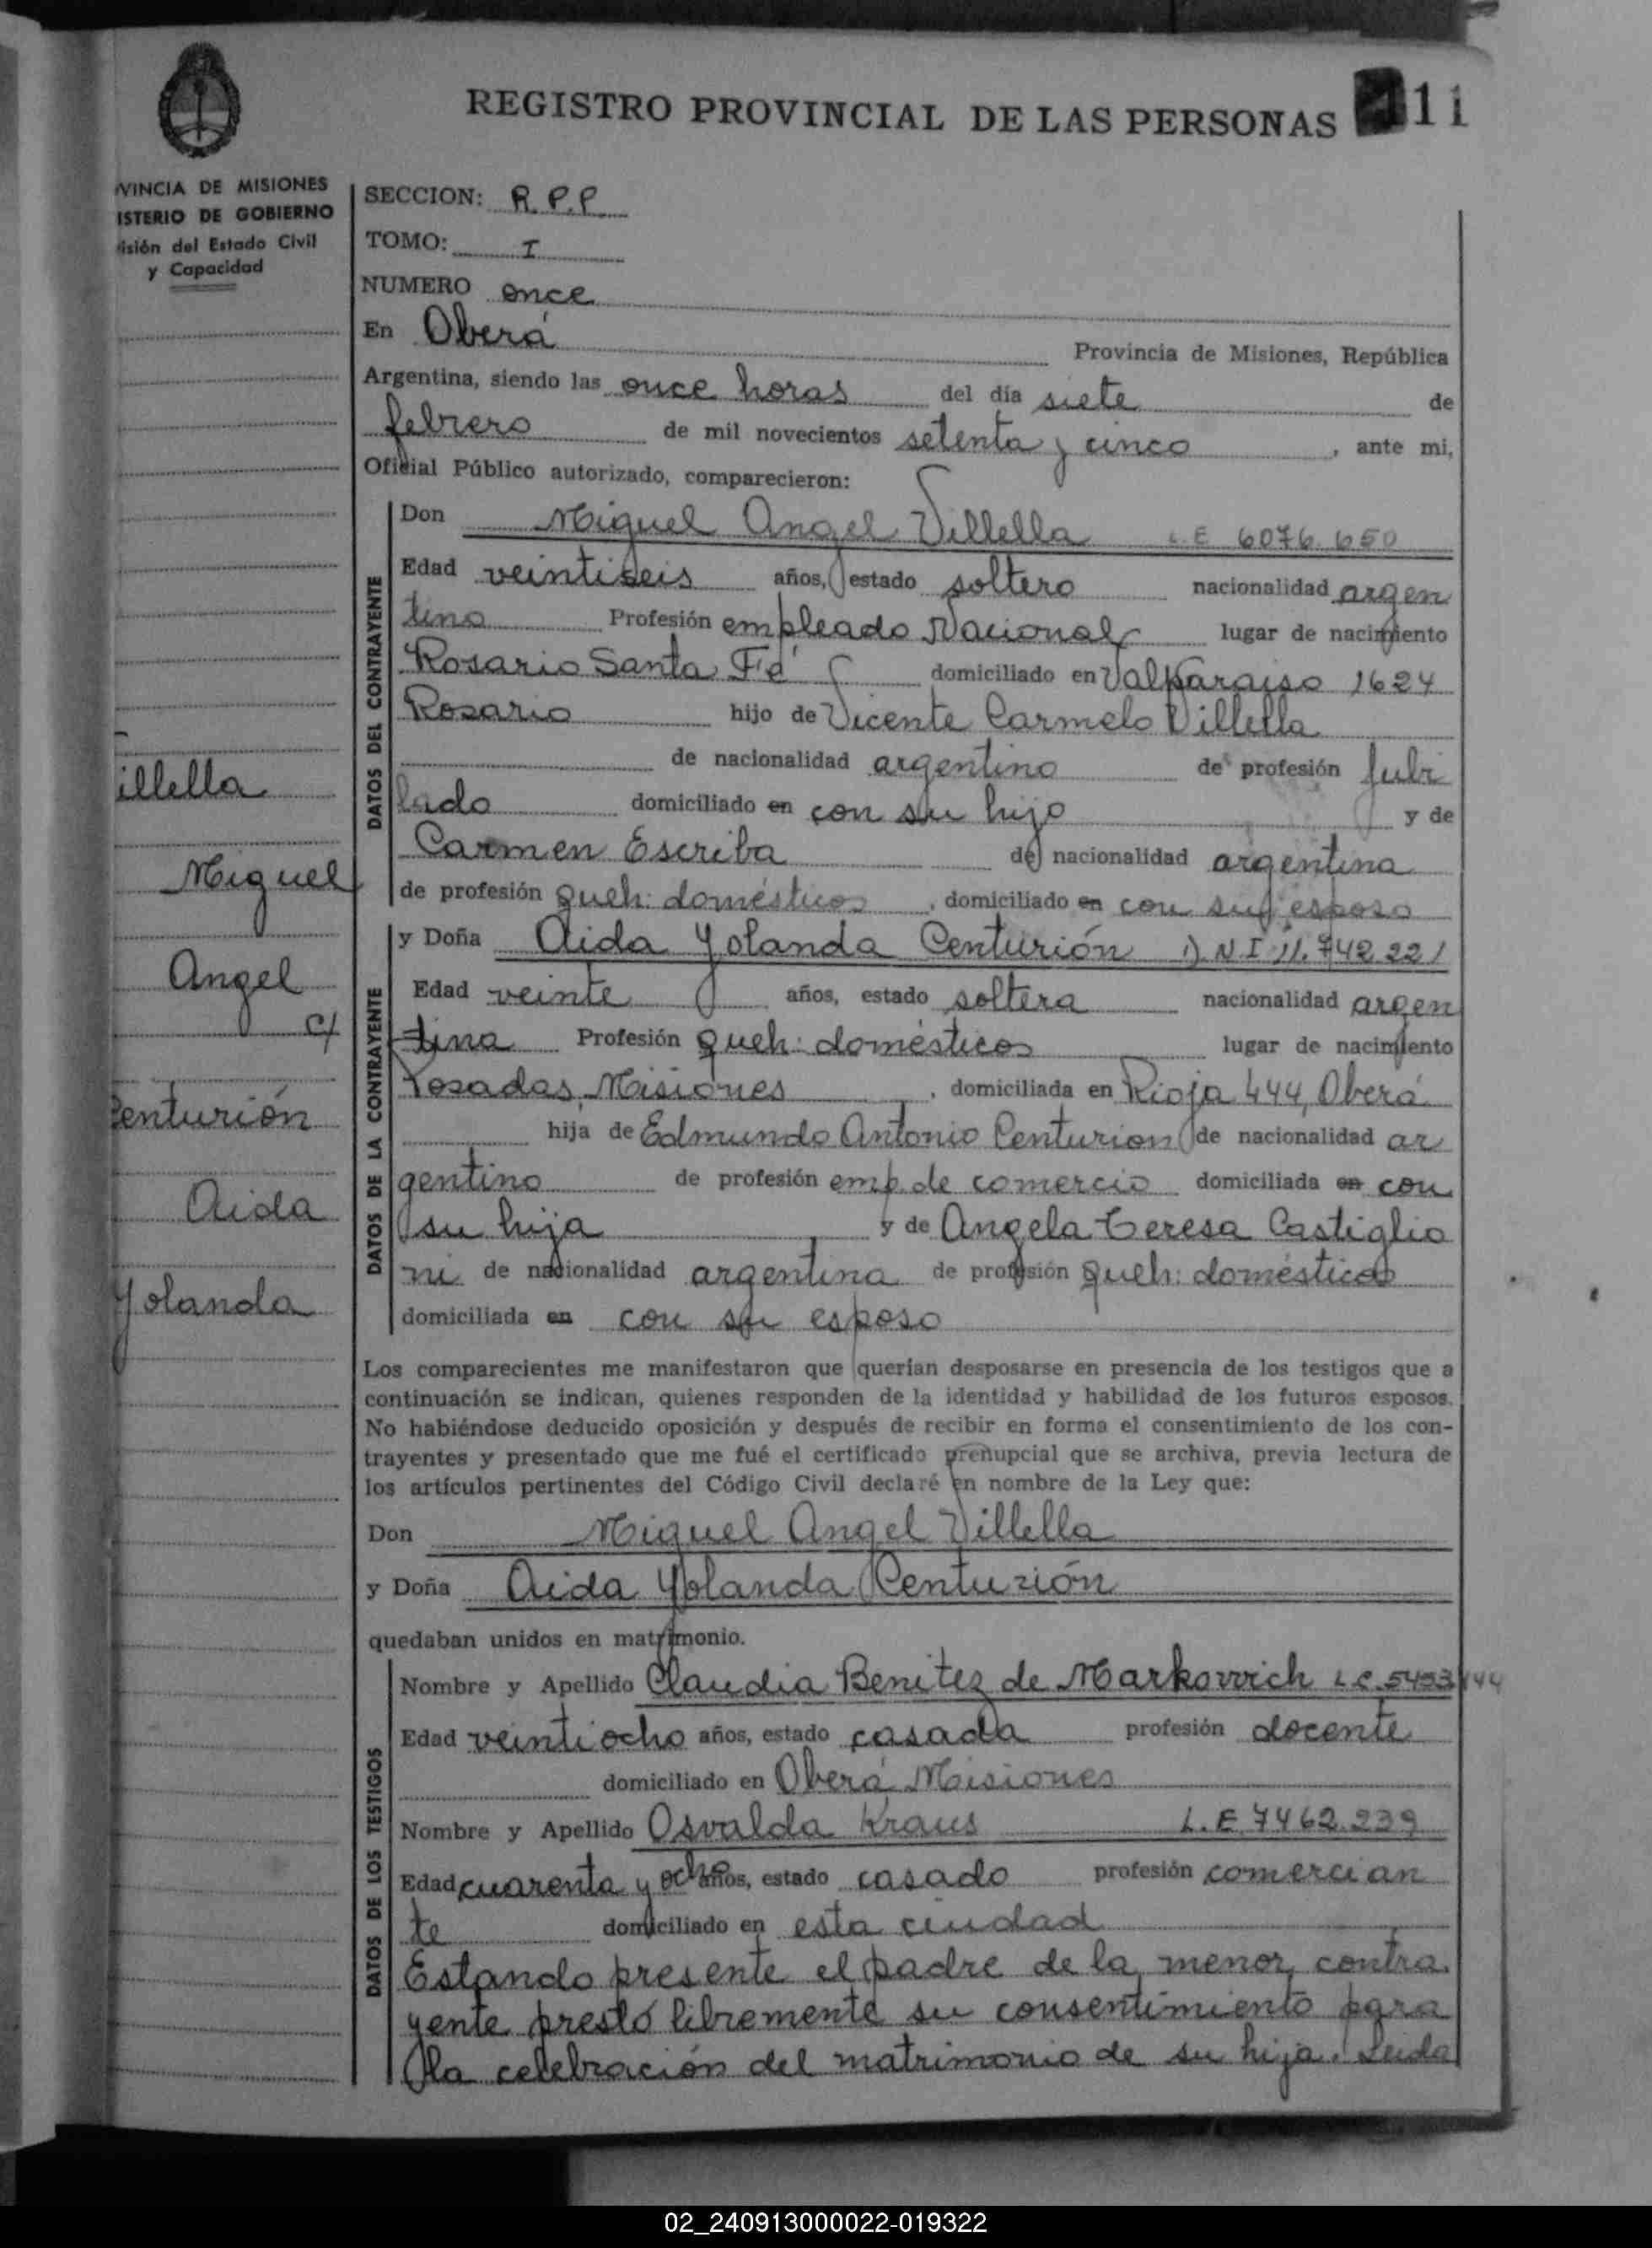 REGISTRO PROVINCIAL DE LAS PERSONAS 11
VINCIA DE MISIONES
ISTERIO DE GOBIERNO
isión del Estado Civil
y Capacidad
SECCION: R.P.P.
TOMO: I
NUMERO once
En Oberá Provincia de Misiones, República
Argentina, siendo las once horas del día siete de
febrero de mil novecientos setenta y cinco, ante mi,
Oficial Público autorizado, comparecieron:
illella
Miguel
Angel
c/
Centurión
Aida
Yolanda
DATOS DEL CONTRAYENTE
Don Miguel Angel Villella L.E 6076.650
Edad veintiseis años, estado soltero nacionalidad argen
tino Profesión empleado Nacional lugar de nacimiento
Rosario Santa Fé domiciliado en Valparaiso 1624
Rosario hijo de Vicente Carmelo Villella
de nacionalidad argentino de profesión Jubi
lado domiciliado en con su hijo y de
Carmen Escriba de nacionalidad argentina
de profesión queh: domésticos, domiciliado en con su esposo
DATOS DE LA CONTRAYENTE
y Doña Aida Yolanda Centurión D.N.I 11.742.221
Edad veinte años, estado soltera nacionalidad argen
tina Profesión queh: domésticos lugar de nacimiento
Posadas, Misiones, domiciliada en Rioja 444, Oberá
hija de Edmundo Antonio Centurion de nacionalidad ar
gentino de profesión emp. de comercio domiciliada en con
su hija y de Angela Teresa Castiglio
ni de nacionalidad argentina de profesión queh: domésticos
domiciliada en con su esposo
Los comparecientes me manifestaron que querían desposarse en presencia de los testigos que a
continuación se indican, quienes responden de la identidad y habilidad de los futuros esposos.
No habiéndose deducido oposición y después de recibir en forma el consentimiento de los con-
trayentes y presentado que me fué el certificado prenupcial que se archiva, previa lectura de
los artículos pertinentes del Código Civil declaré en nombre de la Ley que:
Don Miguel Angel Villella
y Doña Aida Yolanda Centurión
quedaban unidos en matrimonio.
DATOS DE LOS TESTIGOS
Nombre y Apellido Claudia Benitez de Markovvich L.C. 5453144
Edad veintiocho años, estado casada profesión docente
domiciliado en Oberá Misiones
Nombre y Apellido Osvalda Kraus L.E. 7462.239
Edad cuarenta y ocho años, estado casado profesión comercian
te domiciliado en esta ciudad
Estando presente el padre de la menor, contra
yente prestó libremente su consentimiento para
la celebración del matrimonio de su hija. Leida
02_240913000022-019322